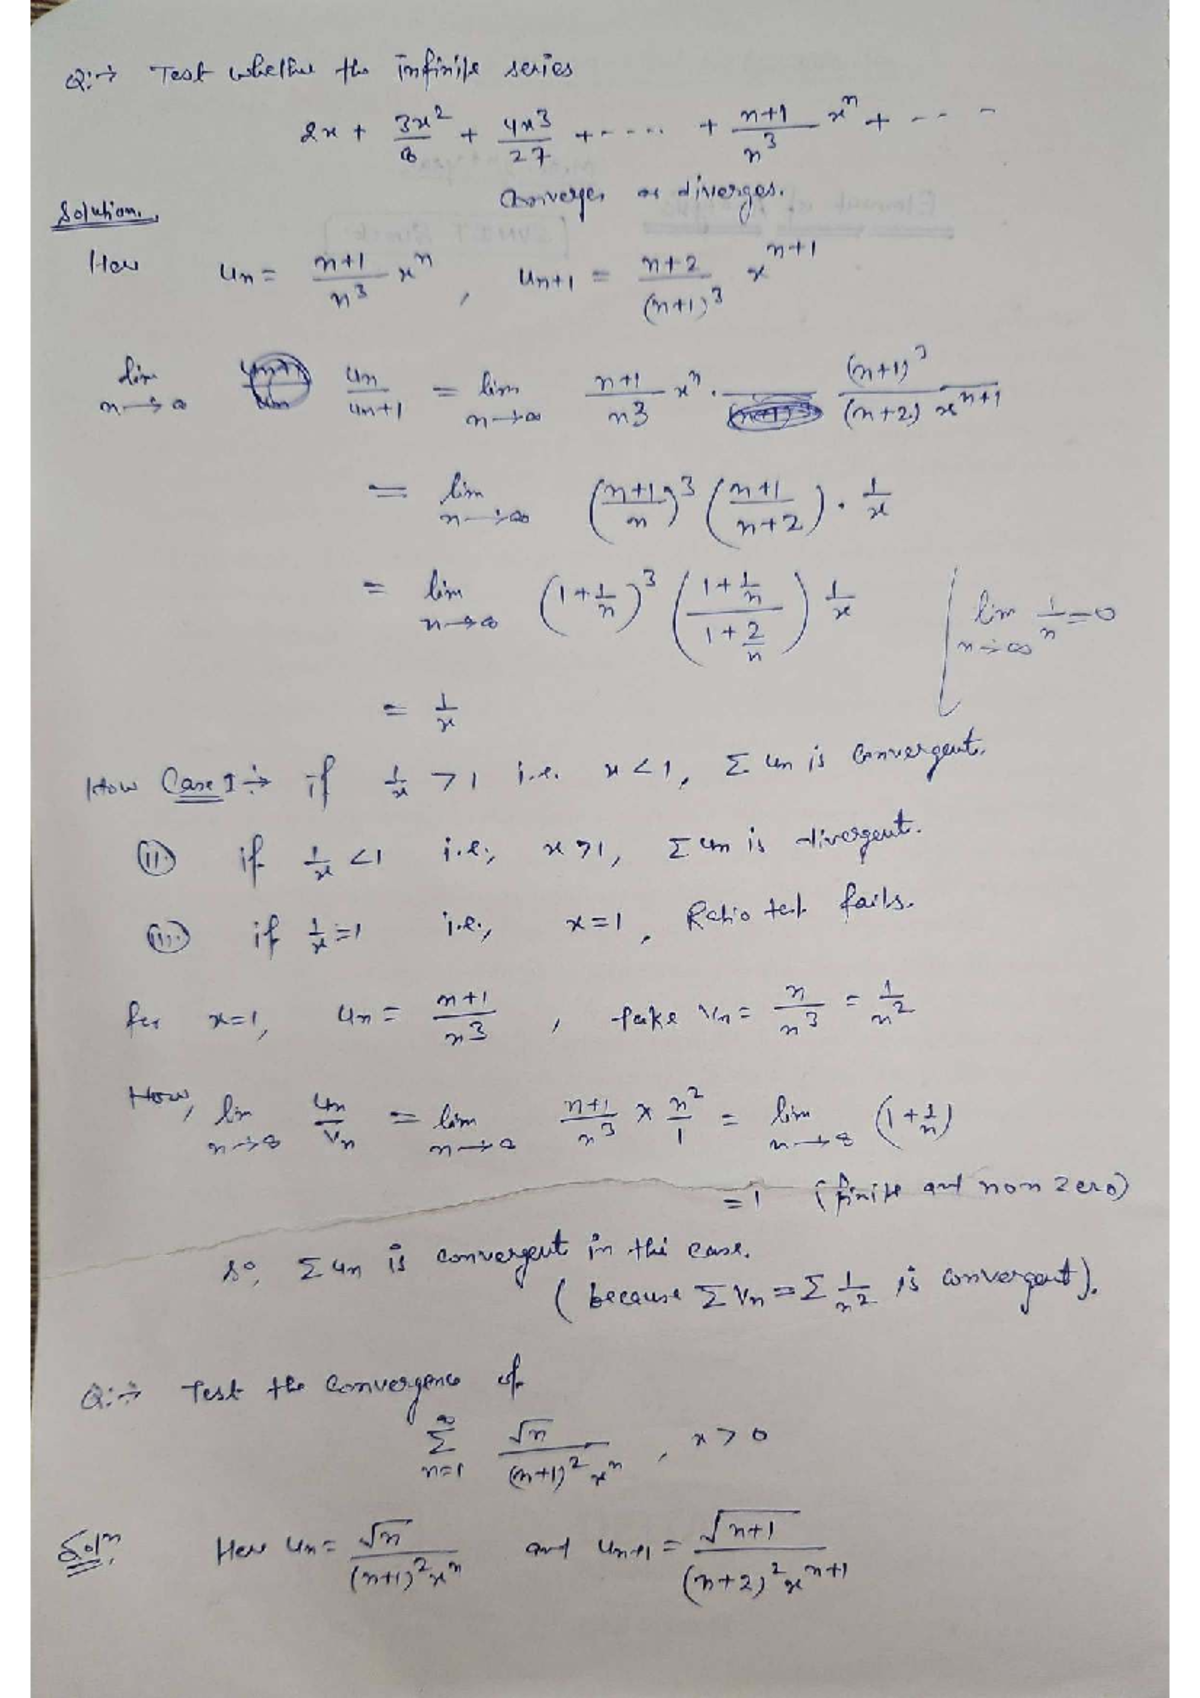 Q:→ Test whether the infinite series
2x + 3x²/8 + 4x³/27 + ..... + (n+1)/n³ xⁿ + -- -
converges or diverges.
Solution.
Here uₙ = (n+1)/n³ xⁿ , uₙ₊₁ = (n+2)/(n+1)³ xⁿ⁺¹
lim n→∞ uₙ/uₙ₊₁ = lim n→∞ (n+1)/n³ xⁿ . (n+1)³/((n+2) xⁿ⁺¹)
= lim n→∞ ((n+1)/n)³ ((n+1)/(n+2)) . 1/x
= lim n→∞ (1+1/n)³ ((1+1/n)/(1+2/n)) 1/x [ lim n→∞ 1/n = 0
= 1/x
Now Case I ÷→ if 1/x > 1 i.e. x < 1, Σ uₙ is convergent.
(ii) if 1/x < 1 i.e., x > 1, Σ uₙ is divergent.
(iii) if 1/x = 1 i.e., x = 1, Ratio test fails.
for x = 1, uₙ = (n+1)/n³ , take vₙ = n/n³ = 1/n²
Now, lim n→∞ uₙ/vₙ = lim n→∞ (n+1)/n³ × n²/1 = lim n→∞ (1+1/n)
= 1 (finite and non zero)
So, Σ uₙ is convergent in this case.
( because Σ vₙ = Σ 1/n² is convergent).
Q:→ Test the convergence of
∞ Σ n=1 √n/((n+1)² xⁿ) , x > 0
Solⁿ. Here uₙ = √n/((n+1)² xⁿ) and uₙ₊₁ = √(n+1)/((n+2)² xⁿ⁺¹)